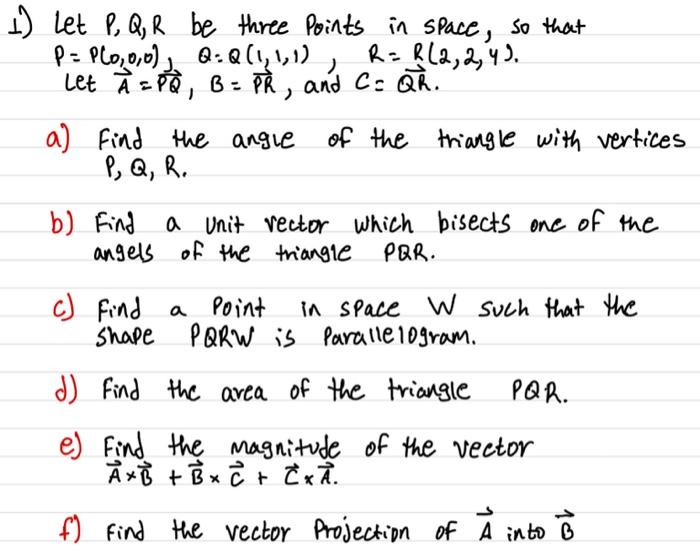 1) Let P, Q, R be three Points in space, so that
P = P(0,0,0), Q = Q(1,1,1), R = R(2,2,4).
Let A⃗ = PQ⃗, B = PR⃗, and C = QR⃗.
a) Find the angle of the triangle with vertices
P, Q, R.
b) Find a unit vector which bisects one of the
angels of the triangle PQR.
c) Find a Point in space W such that the
shape PQRW is Parallelogram.
d) Find the area of the triangle PQR.
e) Find the magnitude of the vector
A⃗×B⃗ + B⃗×C⃗ + C⃗×A⃗.
f) Find the vector Projection of A⃗ into B⃗